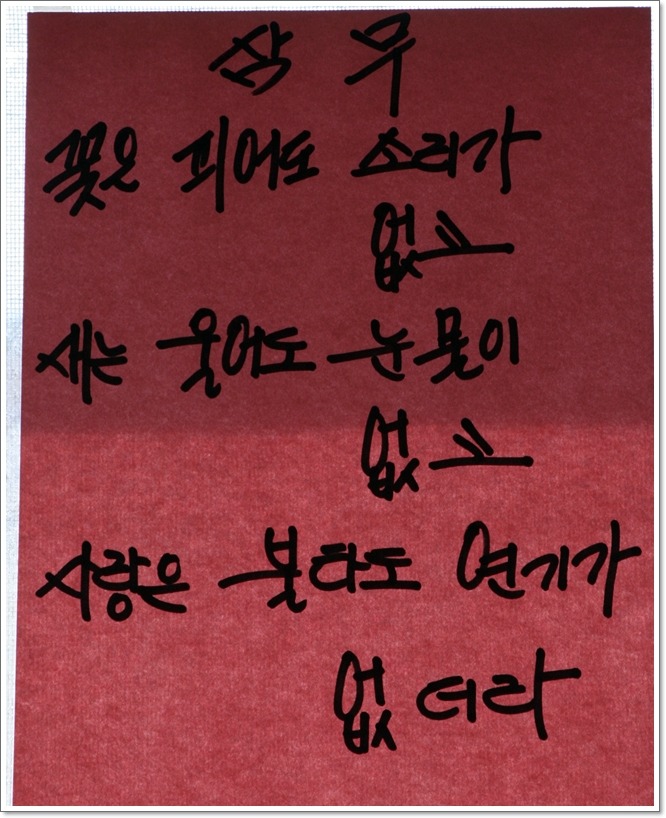 삼 무
꽃은 피어도 소리가
없고
새는 울어도 눈물이
없고
사랑은 불타도 연기가
없더라